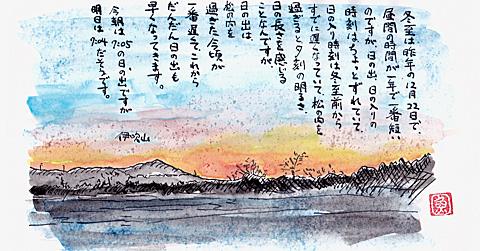 冬至は昨年の12月22日で
昼間の時間が一年で一番短い
のですが、日の出、日の入りの
時刻はちょっとずれていて
日の入り時刻は冬至前から
すでに遅くなっていて、松の内を
過ぎると夕刻の明るさ、
日の長さを感じる
ことなんですが、
日の出は、
松の内を
過ぎた今頃が
一番遅くて、これから
だんだん日の出も
早くなってきます。
今朝は7:05の日の出ですが
明日は7:04だそうです。
伊吹山